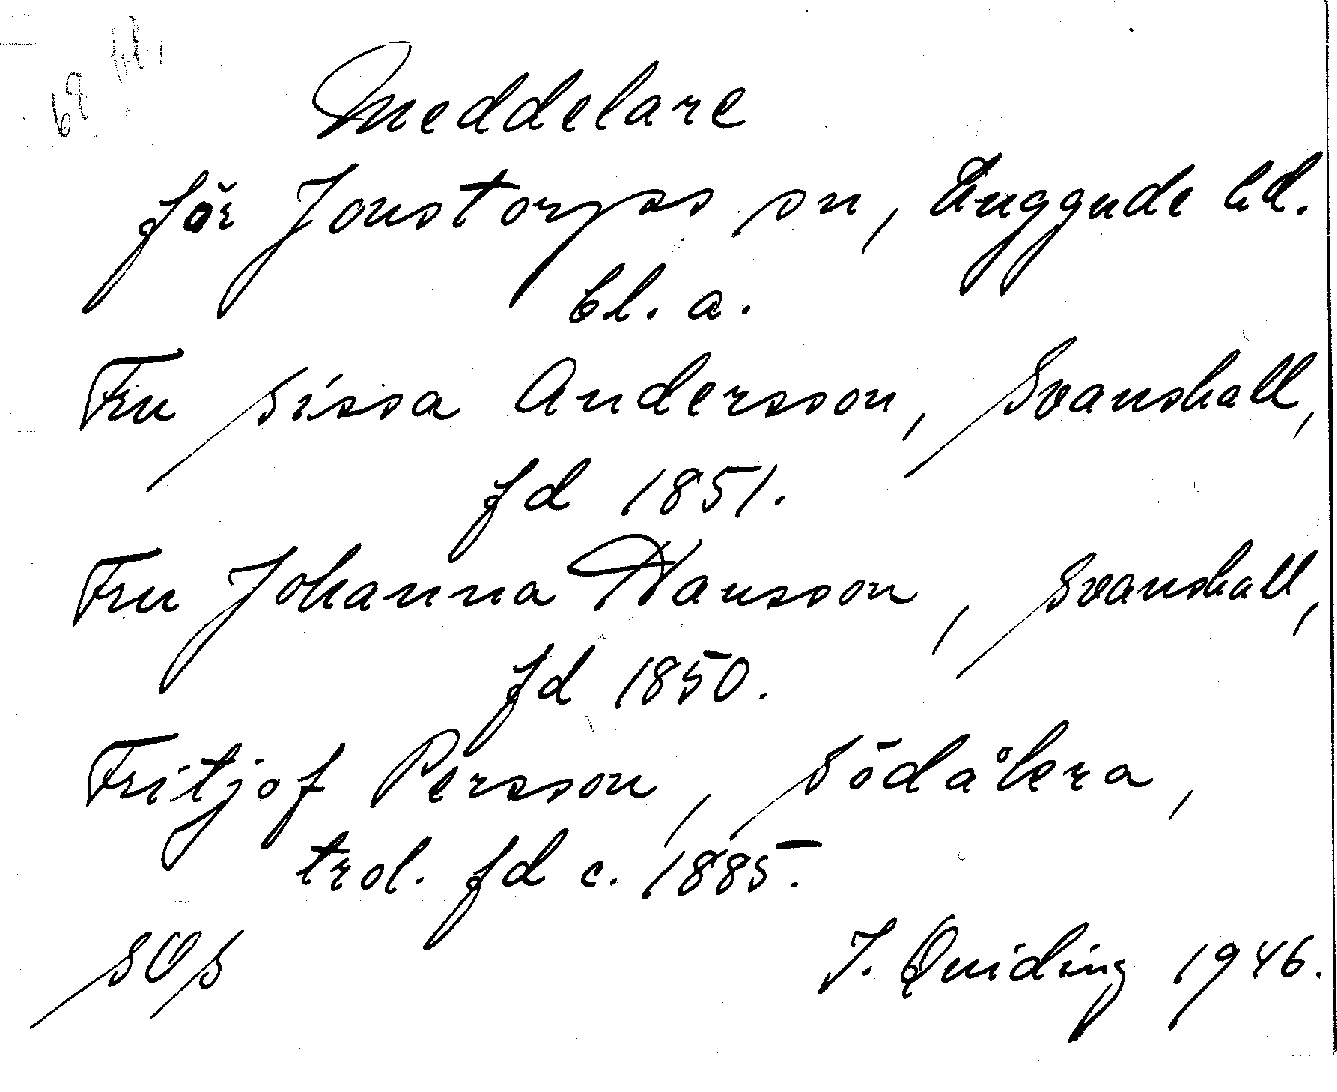 68 bl.
Meddelare
för Jonstorps sn, Luggude hd.
bl. a.
Fru Sissa Andersson, Svanshall,
fd 1851.
Fru Johanna Hansson, Svanshall,
fd 1850.
Fritjof Persson, Södåkra,
trol. fd c. 1885.
SOS
I. Quiding 1946.